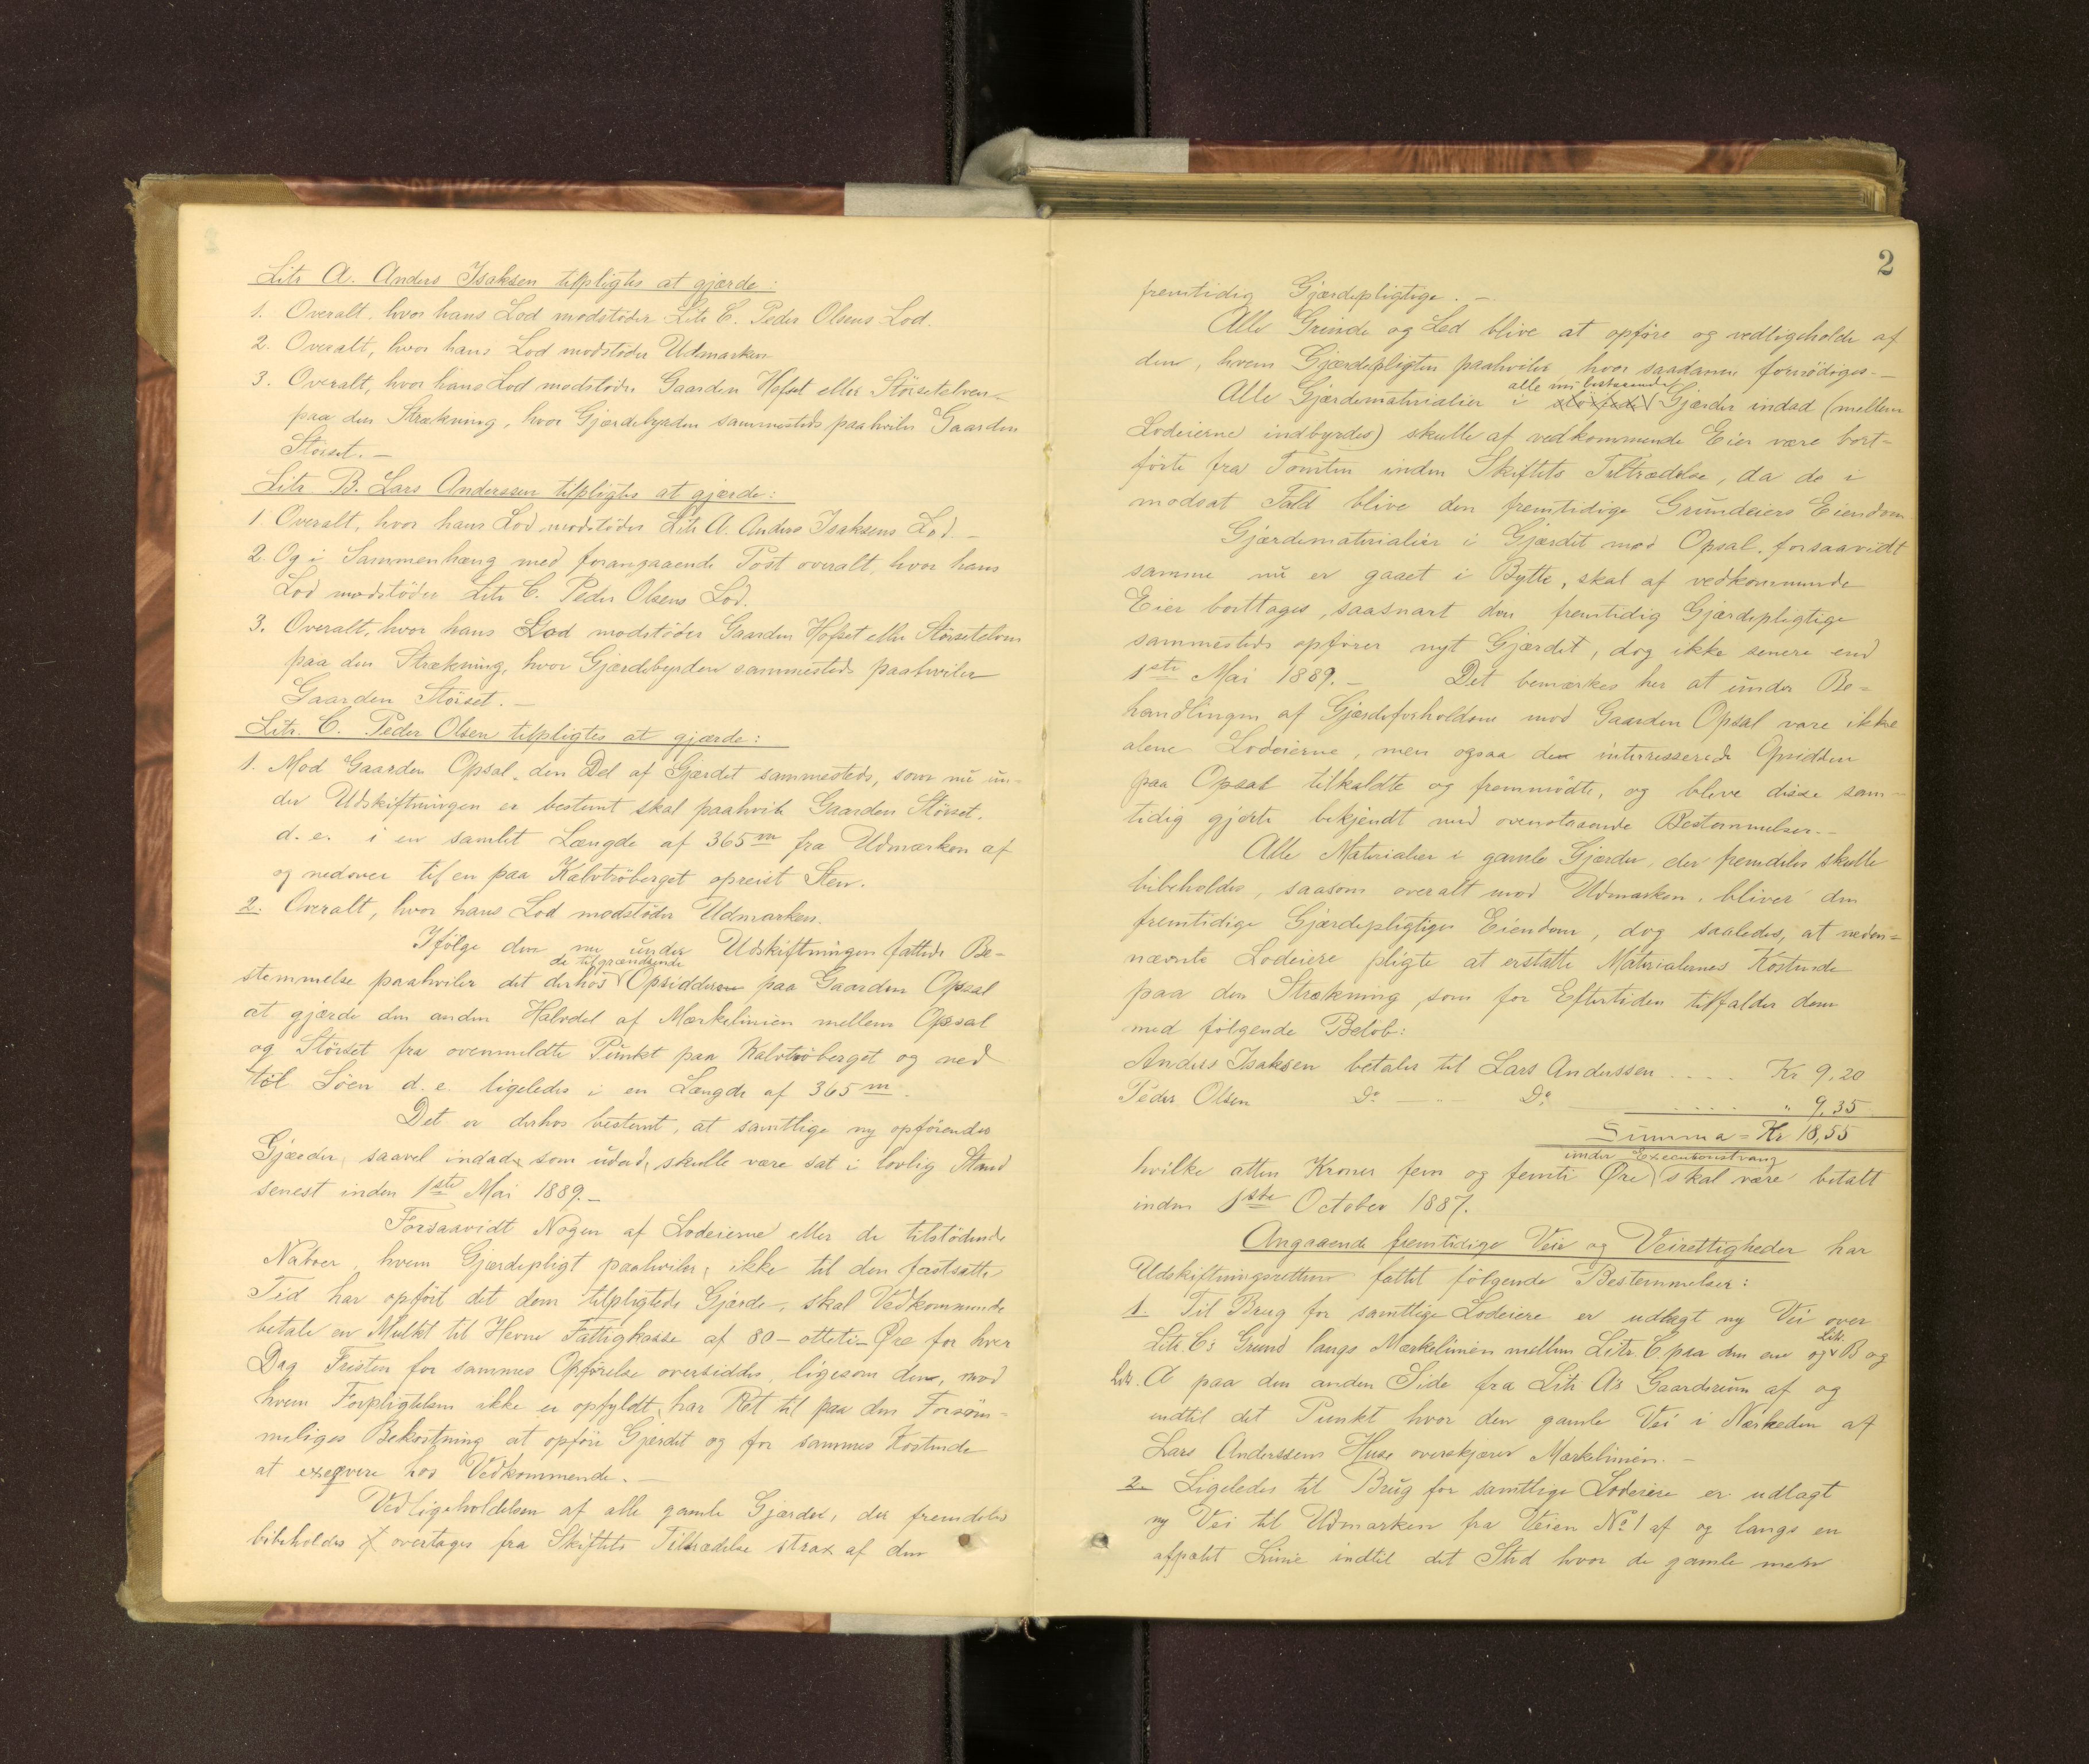 Litr A. Anders Isaksen tilpligtes at gjærde:
1. Overalt, hvor hans Lod modstöder Litr C. Peder Olsens Lod.
2. Overalt, hvor hans Lod modstöder Udmarken
3. Overalt, hvor hans Lod modstöder Gaarden Hofset eller Störsetelven
paa den Strækning, hvor Gjærdebyrden sammesteds paahviler Gaarden
Störset. —
Litr B. Lars Anderssen tilpligtes at gjærde:
1 Overalt, hvor hans Lod modstöder Litr A. Anders Isaksens Lod. —
2. Og i Sammenhæng med forangaaende Post overalt, hvor hans
Lod modstöder Litr C. Peder Olsens Lod.
3. Overalt, hvor hans Lod modstöder Gaarden Hofset eller Störsetelven
paa den Strækning, hvor Gjærdebyrden sammesteds paahviler
Gaarden Störset. —
Litr. C. Peder Olsen tilpligtes at gjærde:
1. Mod Gaarden Opsal, den Del af Gjærdet sammesteds, som nu un-
der Udskiftningen er bestemt skal paahvile Gaarden Störset,
d. e. i en samlet Længde af 365 m fra Udmarken af
og nedover til en paa Kalvtröberget opreist Sten.
2. Overalt, hvor hans Lod modstöder Udmarken.
Ifölge den nu under Udskiftningen fattede Be-
de tilgrændsende
stemmelse paahviler det derhos Opsiddere paa Gaarden Opsal
at gjærde den anden Halvdel af Mærkelinien mellem Opsal
og Störset fra ovenmeldte Punkt paa Kalvtröberget og ned
til Söen d. e. ligeledes i en Længde af 365 m.
Det er derhos bestemt, at samtlige ny opförendes
Gjærder, saavel indad, som udad, skulle være sat i lovlig Stand
senest inden 1ste Mai 1889. —
Forsaavidt Nogen af Lodeierne eller de tilstödende
Naboer, hvem Gjærdepligt paahviler, ikke til den fastsatte
Tid har opfört det dem tilpligtede Gjærde, skal Vedkommende
betale en Mulkt til Hevne Fattigkasse af 80 – otteti – Öre for hver
Dag Fristen for sammes Opförelse oversiddes, ligesom den, mod
hvem Forpligtelsen ikke er opfyldt, har Ret til paa den Forsöm-
meliges Bekostning at opföre Gjærdet og for sammes Kostende
at exeqvere hos Vedkommende. —
Vedligeholdelsen af alle gamle Gjærder, der fremdeles
bibeholdes overtages fra Skiftets Tiltrædelse strax af den
2
fremtidig Gjærdepligtige. —
Alle Grinde og Led blive at opföre og vedligeholde af
den, hvem Gjærdepligten paahviler, hvor saadanne fornödiges. —
alle nu bestaaende
Alle Gjærdematerialier i Gjærder indad (mellem
Lodeierne indbyrdes) skulle af vedkommende Eier være bort-
förte fra Tomten inden Skiftets Tiltrædelse, da de i
modsat Fald blive den fremtidige Grundeiers Eiendom
Gjærdematerialier i Gjærdet mod Opsal, forsaavidt
samme nu er gaaet i Bytte, skal af vedkommende
Eier borttages, saasnart den fremtidig Gjærdepligtige
sammesteds opförer nyt Gjærdet, dog ikke senere end
1ste Mai 1889. — Det bemærkes her at under Be-
handlingen af Gjærdeforholdene mod Gaarden Opsal vare ikke
alene Lodeierne, men ogsaa de interesserede Opsiddere
paa Opsal tilkaldte og fremmödte, og bleve disse sam-
tidig gjorte bekjendt med ovenstaaende Bestemmelser. —
Alle Materialier i gamle Gjærder, der fremdeles skulle
bibeholdes, saasom overalt mod Udmarken, bliver den
fremtidige Gjærdepligtiges Eiendom, dog saaledes, at neden-
nævnte Lodeiere pligte at erstatte Materialernes Kostende
paa den Strækning, som for Eftertiden tilfalder dem
med fölgende Belöb:
Anders Isaksen betaler til Lars Anderssen .... Kr 9,20
Peder Olsen Do — " — Do .... " 9,35
Summa = Kr 18,55
under Executionstvang
hvilke atten Kroner fem og femti Öre skal være betalt
inden 1ste October 1887.
Angaaende fremtidige Veie og Veirettigheder har
Udskiftningsretten fattet fölgende Bestemmelser:
1. Til Brug for samtlige Lodeiere er udlagt ny Vei over
Litr.
Litr. C's Grund langs Mærkelinien mellem Litr. C. paa den ene og B og
Litr. A paa den anden Side fra Litr A's Gaardsrum af og
indtil det Punkt hvor den gamle Vei i Nærheden af
Lars Anderssens Huse overskjærer Mærkelinien. —
2. Ligeledes til Brug for samtlige Lodeiere er udlagt
ny Vei til Udmarken fra Veien No 1 af og langs en
afpælet Linie indtil det Sted hvor de gamle